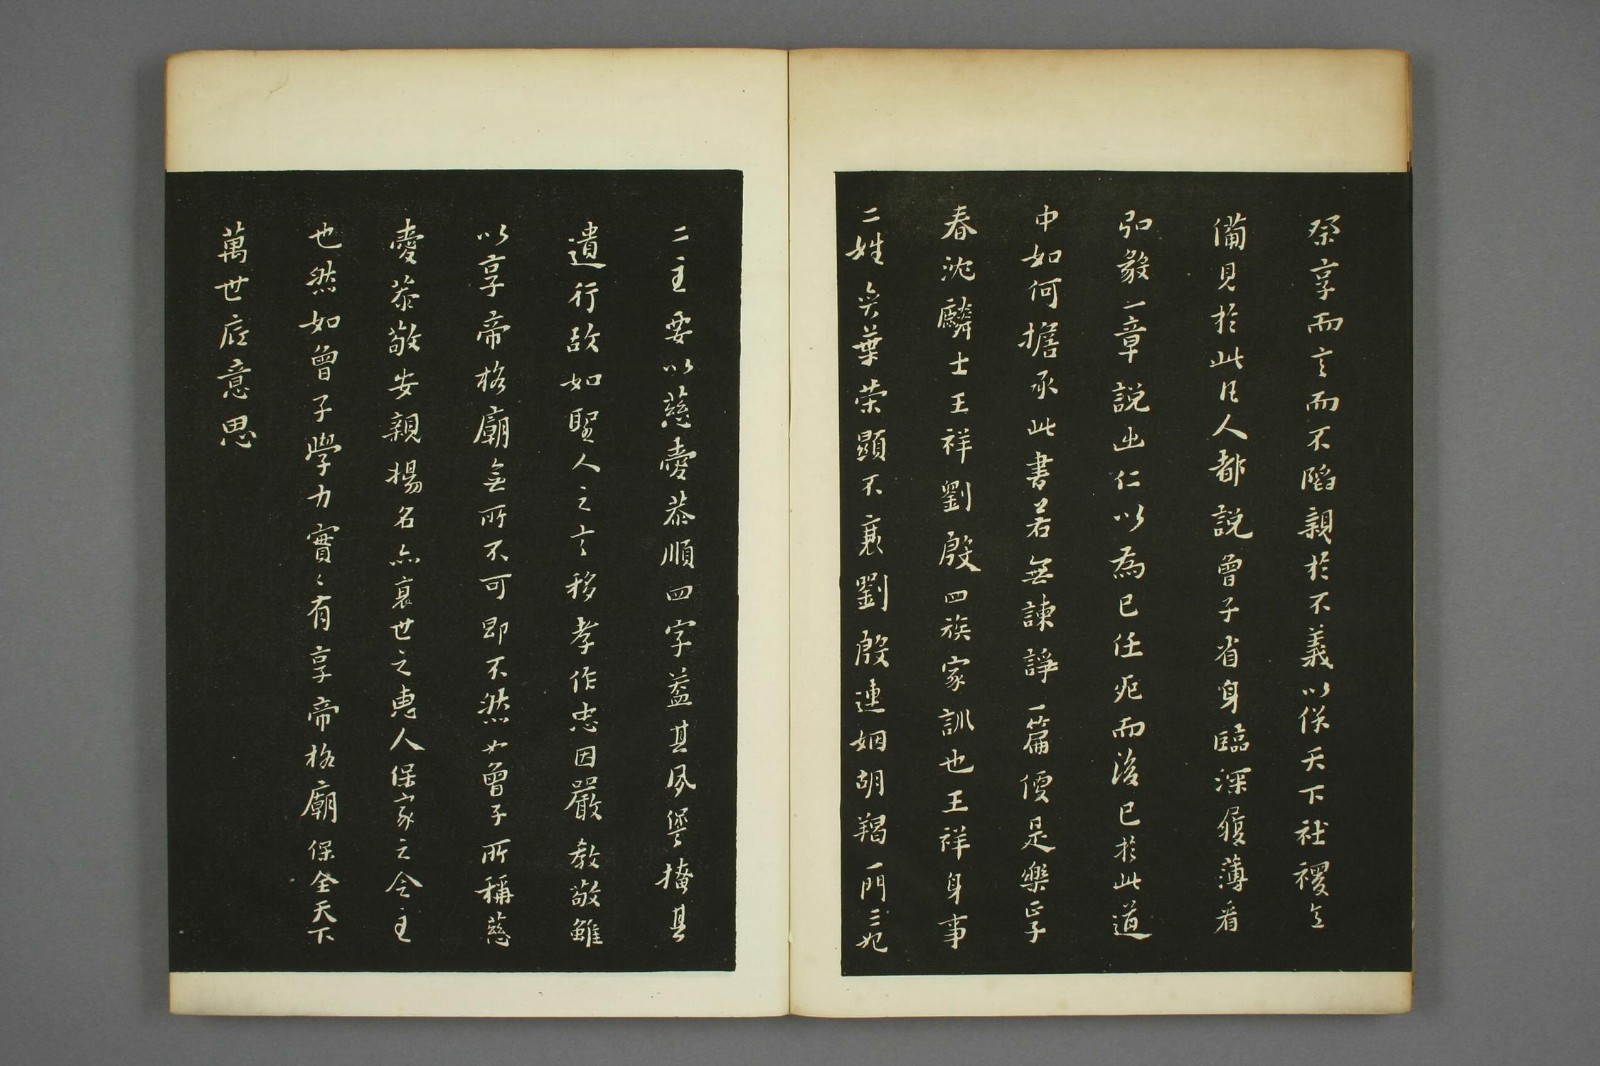 祭享而言而不陷親於不義以保天下社稷之
備見於此凡人都說曾子省身臨深履薄看
弘毅一章說出仁以為己任死而後已於此道
中如何擔承此書若無諫諍一篇便是樂正子
春沈驎士王祥劉殷四族家訓也王祥身事
二姓奕葉榮顯不衰劉殷連姻胡羯一門三妃
二主要以慈愛恭順四字葢其夙譽掩其
遺行故如聖人之言移孝作忠因嚴教敬雖
以享帝格廟無所不可即不然如曾子所稱慈
愛恭敬安親揚名亦衰世之惠人保家之令主
也然如曾子學力實實有享帝格廟保全天下
萬世底意思